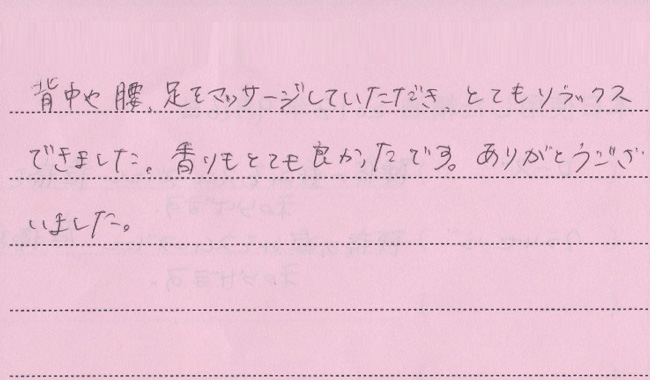 背中や腰、足をマッサージしていただき、とてもリラックス
できました。香りもとても良かったです。ありがとうござ
いました。